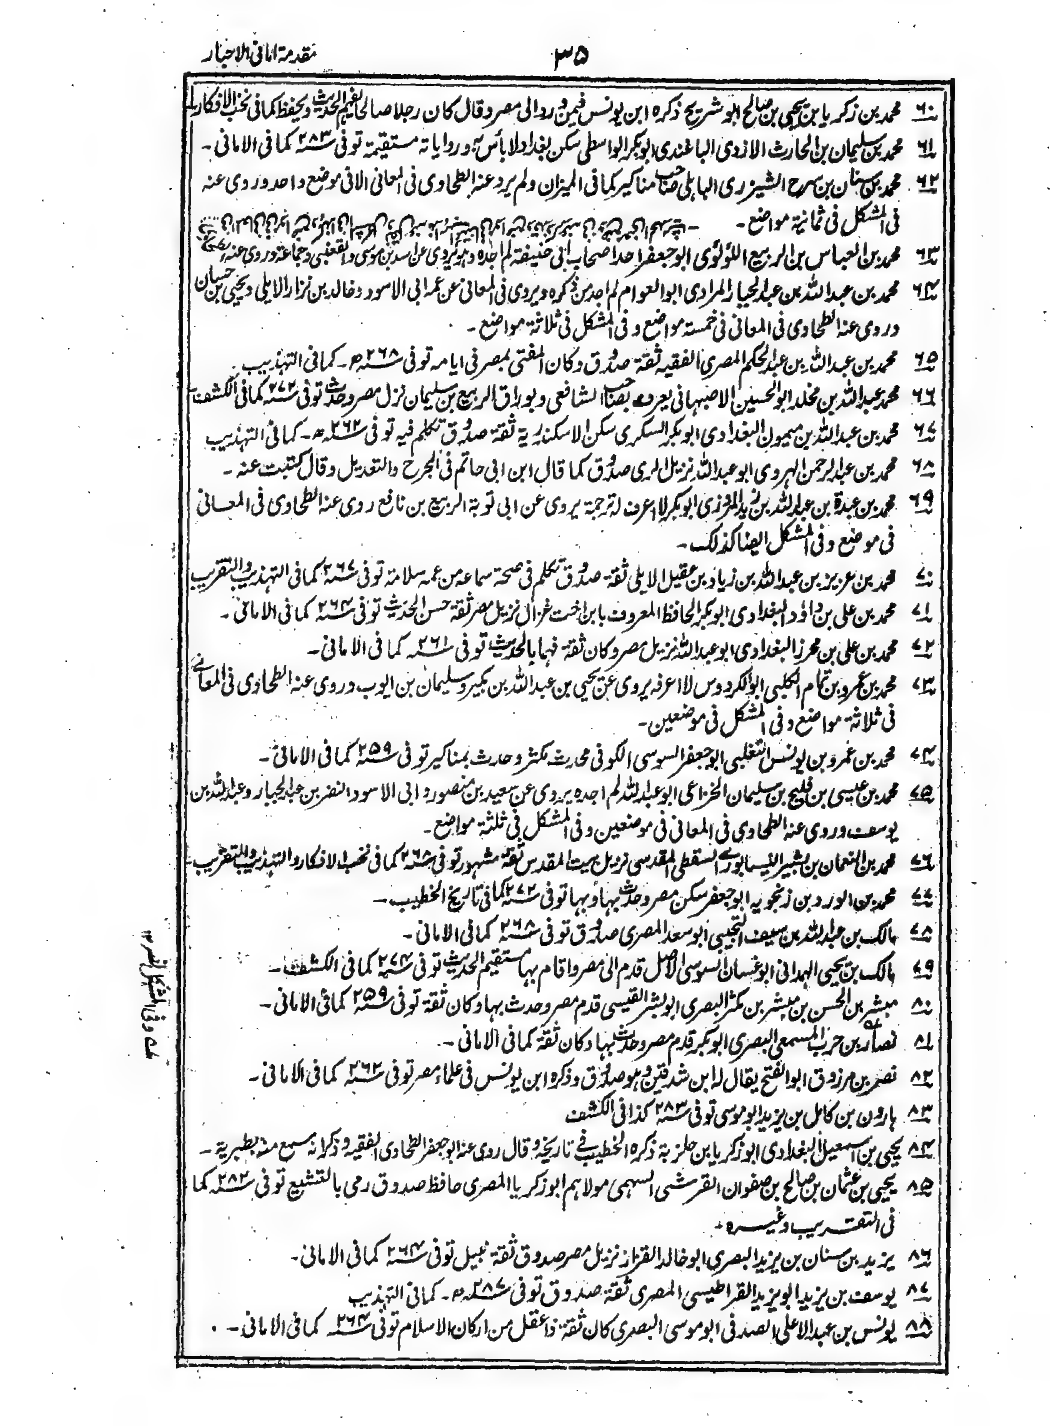 مقدمة امانی الاحبار
۳۵
۶۰ محمد بن زکریا بن یحیی بن صالح ابو شریح ذکره ابن یونس فیمن ورد الی مصر وقال کان رجلا صالحا یفهم الحدیث ویحفظ کما فی نخب الافکار
۶۱ محمد بن سلیمان بن الحارث الازدی الباغندی ابو بکر الواسطی سکن بغداد لا بأس به وروایاته مستقیمة توفی سنة ۲۸۳ کما فی الامانی۔
۶۲ محمد بن سنان بن سرح الشیزری الباهلی صاحب مناکیر کما فی المیزان ولم یرو عنه الطحاوی فی المعانی الا فی موضع واحد وروی عنه
فی المشکل فی ثمانیة مواضع۔
۶۳ محمد بن العباس بن الربیع اللؤلؤی ابو جعفر احد اصحاب ابی حنیفة لم اجده وهو یروی عن اسد بن موسی والقعنبی وجماعة وروی عنه
۶۴ محمد بن عبد الله بن عبد الجبار المرادی ابو العوام لم اجد من ذکره ویروی فی المعانی عن عمه ابی الاسود وخالد بن نزار الایلی ویحیی بن حسان
وروی عنه الطحاوی فی المعانی فی خمسة مواضع وفی المشکل فی ثلاثة مواضع۔
۶۵ محمد بن عبد الله بن عبد الحکم المصری الفقیه ثقة صدوق وکان المفتی بمصر فی ایامه توفی سنة ۲۶۸ھ۔ کما فی التهذیب
۶۶ محمد بن عبد الله بن مخلد ابو الحسین الاصبهانی یعرف بصاحب الشافعی وبوراق الربیع بن سلیمان نزل مصر وحدث توفی سنة ۲۷۲ کما فی الکشف
۶۷ محمد بن عبد الله بن میمون البغدادی ابو بکر السکری سکن الاسکندریة ثقة صدوق تکلم فیه توفی سنة ۲۶۲ھ۔ کما فی التهذیب
۶۸ محمد بن عبد الرحمن الهروی ابو عبد الله نزیل الری صدوق کما قال ابن ابی حاتم فی الجرح والتعدیل وقال کتبت عنه۔
۶۹ محمد بن عبدة بن عبد الله بن زید المروزی ابو بکر لا اعرف له ترجمة یروی عن ابی توبة الربیع بن نافع روی عنه الطحاوی فی المعانی
فی موضع وفی المشکل ایضا کذلک۔
۷۰ محمد بن عزیز بن عبد الله بن زیاد بن عقیل الایلی ثقة صدوق تکلم فی صحة سماعه من عمه سلامة توفی سنة ۲۶۷ کما فی التهذیب والتقریب
۷۱ محمد بن علی بن داؤد البغدادی ابو بکر الحافظ المعروف بابن اخت غزال نزیل مصر ثقة حسن الحدیث توفی سنة ۲۶۴ کما فی الامانی۔
۷۲ محمد بن علی بن محرز البغدادی ابو عبد الله نزیل مصر وکان ثقة فهما بالحدیث توفی سنة ۲۶۱ کما فی الامانی۔
۷۳ محمد بن عمرو بن تمام الکلبی ابو الکردوس لا اعرفه یروی عن یحیی بن عبد الله بن بکیر وسلیمان بن ایوب وروی عنه الطحاوی فی المعانی
فی ثلاثة مواضع وفی المشکل فی موضعین۔
۷۴ محمد بن عمرو بن یونس التغلبی ابو جعفر السوسی الکوفی محدث مکثر وحدث بمناکیر توفی سنة ۲۵۹ کما فی الامانی۔
۷۵ محمد بن عیسی بن فلیح بن سلیمان الخزاعی ابو عبد الله لم اجده یروی عن سعید بن منصور وابی الاسود النضر بن عبد الجبار وعبد الله بن
یوسف وروی عنه الطحاوی فی المعانی فی موضعین وفی المشکل فی ثلثة مواضع۔
۷۶ محمد بن النعمان بن بشیر النیسابوری السقطی المقدسی نزیل بیت المقدس ثقة مشهور توفی سنة ۲۶۸ کما فی نخب الافکار والتهذیب والتقریب
۷۷ محمد بن الورد بن زنجویه ابو جعفر سکن مصر وحدث بها وبها توفی سنة ۲۷۲ کما فی تاریخ الخطیب۔
۷۸ مالک بن عبد الله بن سیف التجیبی ابو سعد المصری صدوق توفی سنة ۲۶۸ کما فی الامانی۔
۷۹ مالک بن یحیی الهمدانی ابو غسان السوسی الاصل قدم الی مصر واقام بها مستقیم الحدیث توفی سنة ۲۷۴ کما فی الکشف۔
۸۰ مبشر بن الحسن بن مبشر بن مکثر البصری ابو بشر القیسی قدم مصر وحدث بها وکان ثقة توفی سنة ۲۵۹ کما فی الامانی۔
۸۱ نصار بن حرب المسمعی البصری ابو بکر قدم مصر وحدث بها وکان ثقة کما فی الامانی۔
۸۲ نصر بن مرزوق ابو الفتح یقال له ابن شدقین وهو صدوق وذکره ابن یونس فی علماء مصر توفی سنة ۲۶۲ کما فی الامانی۔
۸۳ هارون بن کامل بن یزید ابو موسی توفی سنة ۲۸۳ کذا فی الکشف
۸۴ یحیی بن اسمعیل البغدادی ابو زکریا بن حلزبة ذکره الخطیب فی تاریخه وقال روی عنه ابو جعفر الطحاوی الفقیه وذکر انه سمع منه بطبریة۔
۸۵ یحیی بن عثمان بن صالح بن صفوان القرشی السهمی مولاهم ابو زکریا المصری حافظ صدوق رمی بالتشیع توفی سنة ۲۸۲ کما
فی التقریب وغیره۔
۸۶ یزید بن سنان بن یزید البصری ابو خالد القزاز نزیل مصر صدوق ثقة نبیل توفی سنة ۲۶۴ کما فی الامانی۔
۸۷ یوسف بن یزید ابو یزید القراطیسی المصری ثقة صدوق توفی سنة ۲۸۷ھ۔ کما فی التهذیب
۸۸ یونس بن عبد الاعلی الصدفی ابو موسی البصری کان ثقة ذا عقل من ارکان الاسلام توفی سنة ۲۶۴ کما فی الامانی۔
وفی المشکل نصر ۱۲